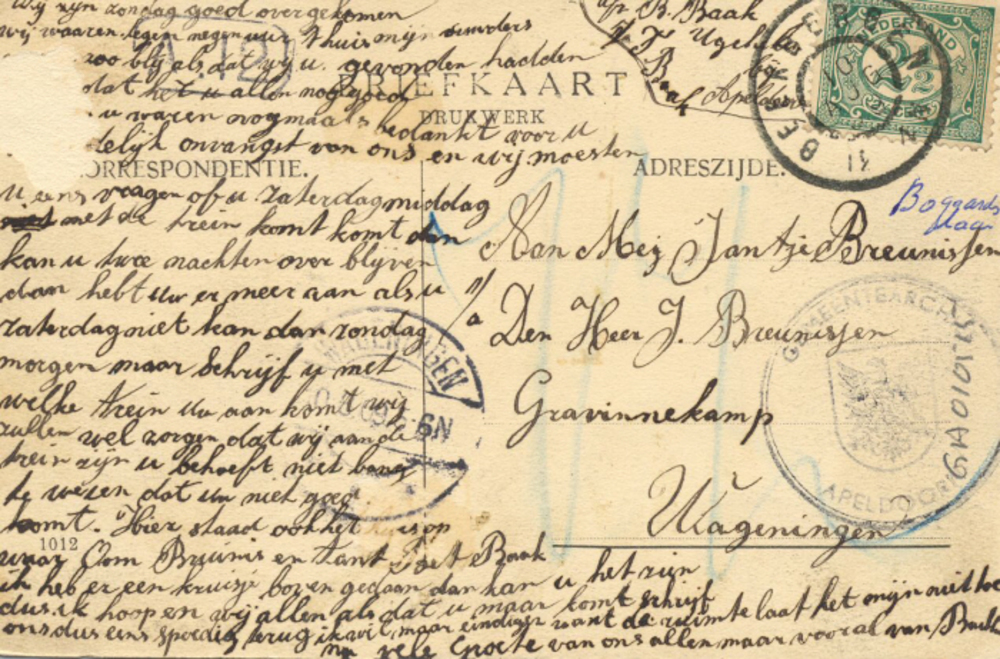 Wij zijn zondag goed overgekomen
wij waaren tegen negen uur thuis mijn ouders
zoo blij als dat wij u gevonden hadden
dat het u allen nog goed
u waren nogmaals bedankt voor u
delijk onvangst van ons en wij moesten
u eens vragen of u zaterdagmiddag
met de trein komt komt dan
kan u twee nachten over blijven
dan hebt uw er meer aan als u
zaterdag niet kan dan zondag
morgen maar schrijf u met
welke trein uw aan komt wij
zullen wel zorgen dat wij aan de
trein zijn u behoeft niet bang
te wezen dat uw niet goed
komt. Hier staad ook het is op
waar Oom Breunis en tant Baak
ik heb er een kruisje boven gedaan dan kan u het zien
dus ik hoop en wij allen als dat u maar komt schrijf
ons dus eens spoedig terug ik wil maar eindigen want de ruimte laat het mijn niet toe
nu vele Groete van ons allen maar vooral van
BRIEFKAART
DRUKWERK
CORRESPONDENTIE.
ADRESZIJDE.
afz. B. Baak
Apeldoorn
BEEKBERGEN
NEDERLAND
2½
CENT
Boggards
lag
Aan Mej Jantje Breunissen
p/a Den Heer J. Breunissen
Gravinnekamp
Wageningen
WAGENINGEN
6N
GEMEENTEARCHIEF
APELDOORN
1012